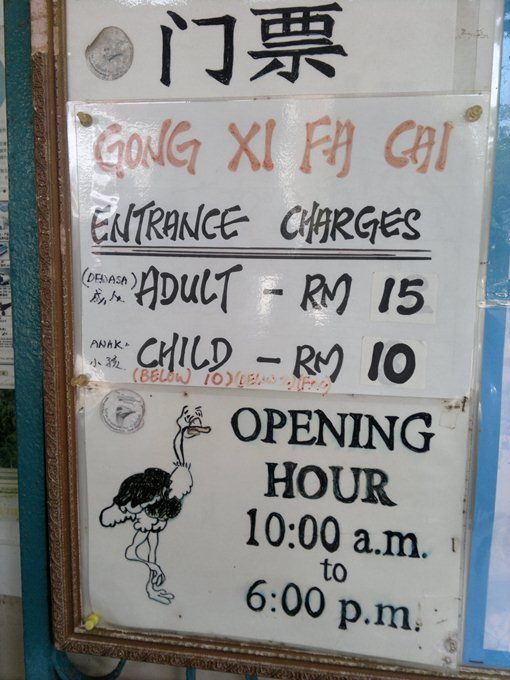 门票
GONG XI FA CAI
ENTRANCE CHARGES
(DEWASA) ADULT - RM 15
成人
ANAK² CHILD - RM 10
小孩
(BELOW 10)
OPENING
HOUR
10:00 a.m.
to
6:00 p.m.